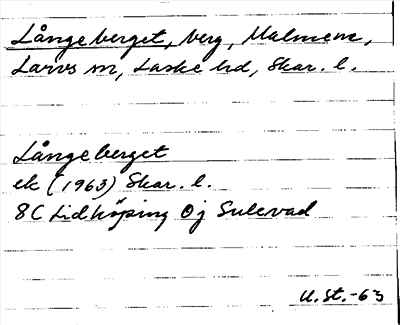 Långeberget, berg, Malmene,
Larvs sn, Laske hd, Skar. l.
Långeberget
ek (1963) Skar. l.
8C Lidköping 0j Sulevad
U.St.-63